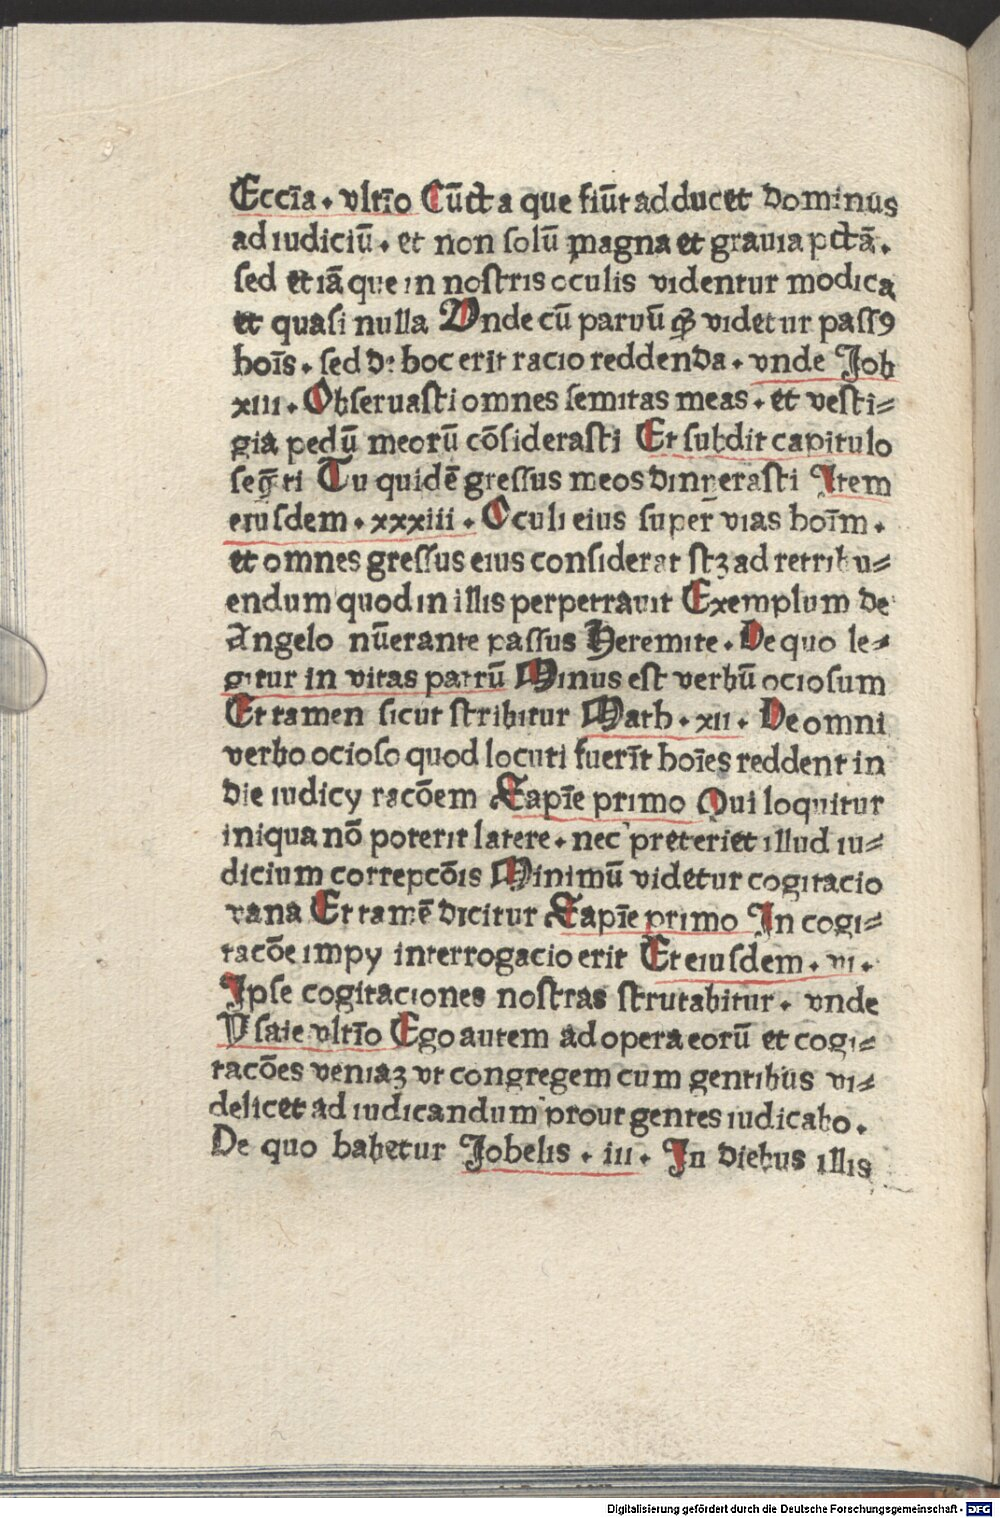 Eccīa . vltīo Cūcta que fiūt adducet dominus
ad iudiciū . et non solū magna et grauia pctā .
sed et iā que in nostris oculis videntur modica
et quasi nulla Vnde cū paruū videtur pass9
hoīs . sed de hoc erit racio reddenda . vnde Job
xiii . Obseruasti omnes semitas meas . et vesti=
gia pedū meorū cōsiderasti Et subdit capitulo
seq̄ti Tu quidē gressus meos dinnerasti Item
eiusdem . xxxiii . Oculi eius super vias hoīm .
et omnes gressus eius considerat stʒ ad retribu=
endum quod in illis perpetrauit Exemplum de
Angelo nūerante passus Heremite . De quo le=
gitur in vitas patrū Minus est verbū ociosum
Et tamen sicut stribitur Math . xii . De omni
verbo ocioso quod locuti fuerīt hoīes reddent in
die iudicy racōem Sapīe primo Qui loquitur
iniqua nō poterit latere . nec preteriet illud iu=
dicium correpcōis Minimū videtur cogitacio
vana Et tamē dicitur Sapīe primo In cogi=
tacōe impy interrogacio erit Et eiusdem . vi .
Ipse cogitaciones nostras strutabitur . vnde
Ysaie vltīo Ego autem ad opera eorū et cogi=
tacōes veniaʒ vt congregem cum gentibus vi=
delicet ad iudicandum prout gentes iudicabo .
De quo habetur Johelis . iii . In diebus illis
Digitalisierung gefördert durch die Deutsche Forschungsgemeinschaft - DFG